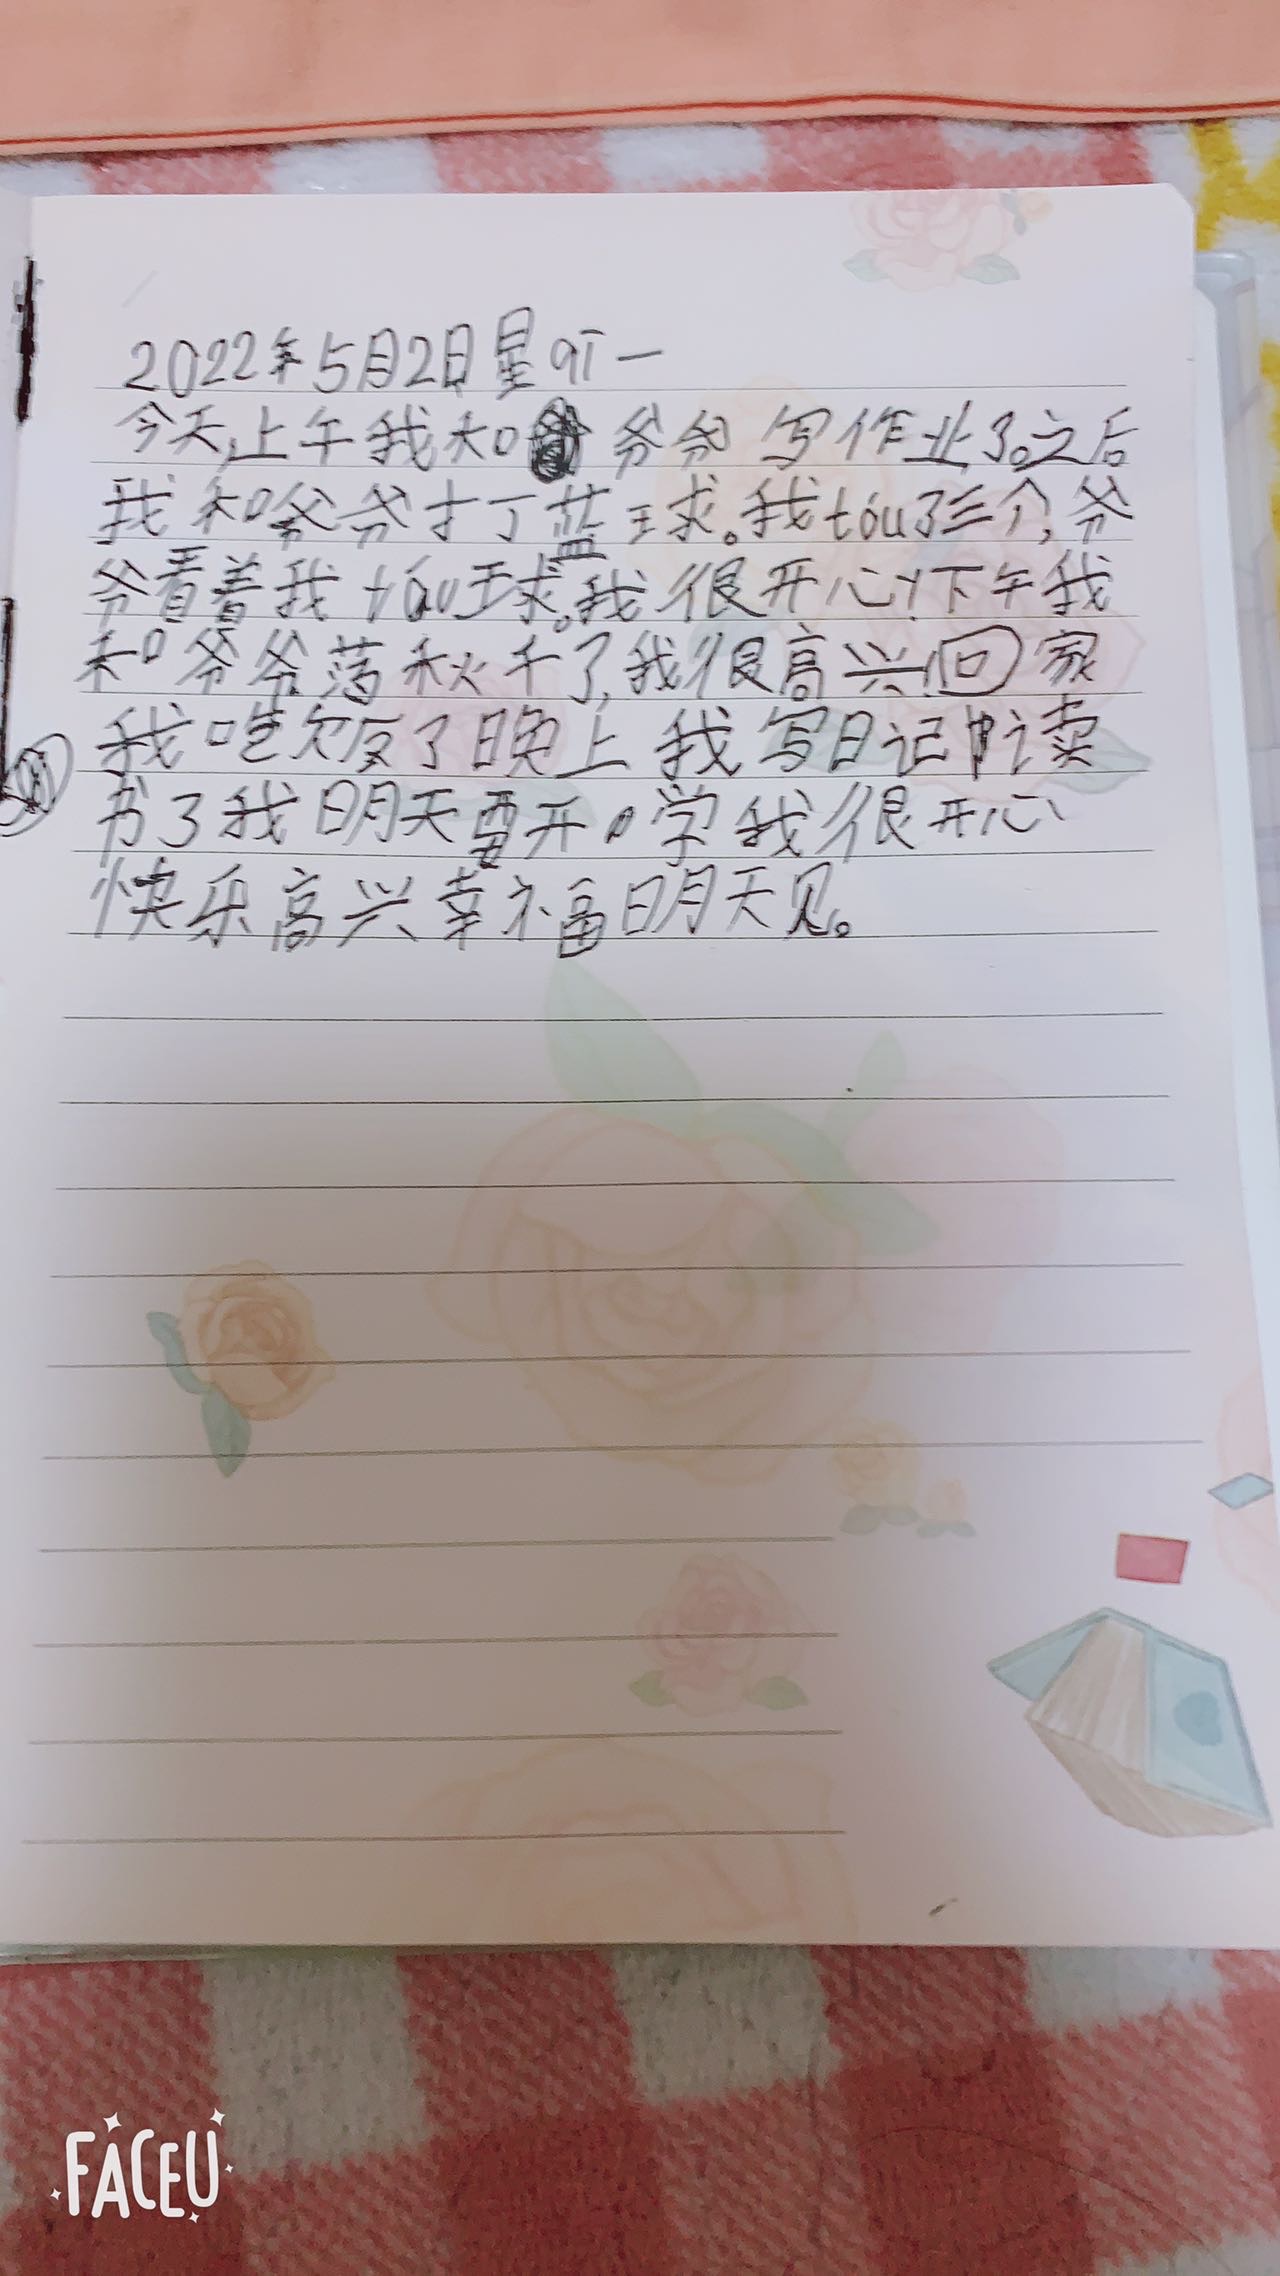 2022年5月2日星qī一
今天,上午我和爷爷写作业了。之后
我和爷爷打了蓝球。我tóu了三个,爷
爷看着我tóu球。我很开心!下午我
和爷爷荡秋千了,我很高兴回家
我吃饭了晚上我写日记读
书了我明天要开学我很开心
快乐高兴幸福明天见。
FACEU